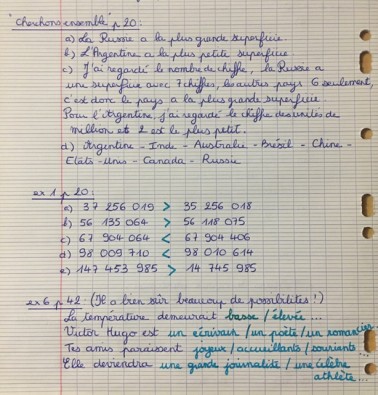 "Cherchons ensemble" p 20 :
a) La Russie a la plus grande superficie.
b) L'Argentine a la plus petite superficie.
c) J'ai regardé le nombre de chiffre, la Russie a
une superficie avec 7 chiffres, les autres pays 6 seulement,
c'est donc le pays a la plus grande superficie.
Pour l'Argentine, j'ai regardé le chiffre des unités de
million et 2 est le plus petit.
d) Argentine - Inde - Australie - Brésil - Chine -
Etats-Unis - Canada - Russie
ex 1 p 20 :
a) 37 256 019 > 35 256 018
b) 56 135 064 > 56 118 075
c) 67 904 064 < 67 904 406
d) 98 009 710 < 98 010 614
e) 147 453 985 > 14 745 985
ex 6 p 42 : (Il a bien sûr beaucoup de possibilités !)
La température demeurait basse / élevée ...
Victor Hugo est un écrivain / un poète / un romancier
Tes amis paraissent joyeux / accueillants / souriants ...
Elle deviendra une grande journaliste / une célèbre
athlète ...